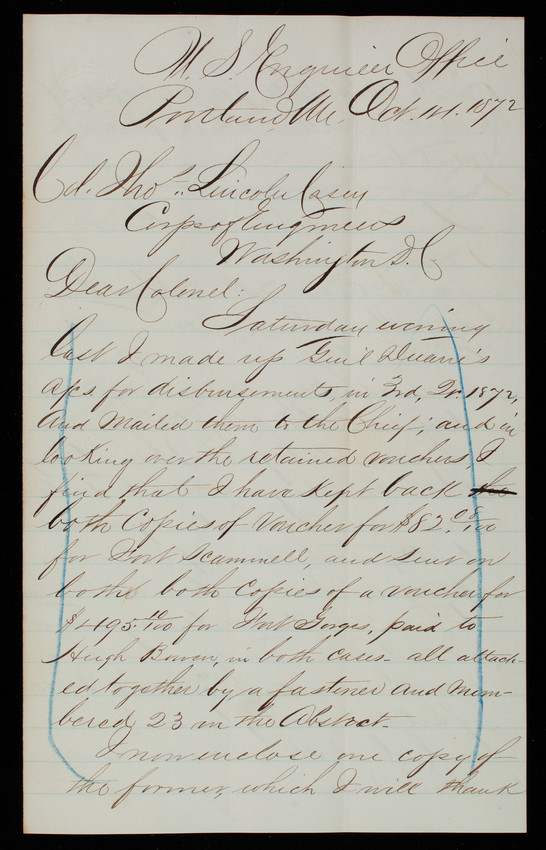 U. S. Engineer Office
Portland, Me. Oct. 14. 1872
Col. Thos. Lincoln Casey
Corps of Engineers
Washington D. C.
Dear Colonel:
Saturday evening
last I made up Genl Duane's
a/cs. for disbursements, in 3rd, Qr. 1872,
and mailed them to the Chief; and in
looking over the retained vouchers, I
find that I have kept back the
both Copies of Voucher for $82.08/100
for Fort Scammell, and sent on
both both copies of a voucher for
$495.10/100 for Fort Gorges, paid to
Hugh Bowen, in both cases - all attach-
ed together by a fastener and num-
bered 23 in the Abstract.
I now enclose one copy of
the former, which I will thank